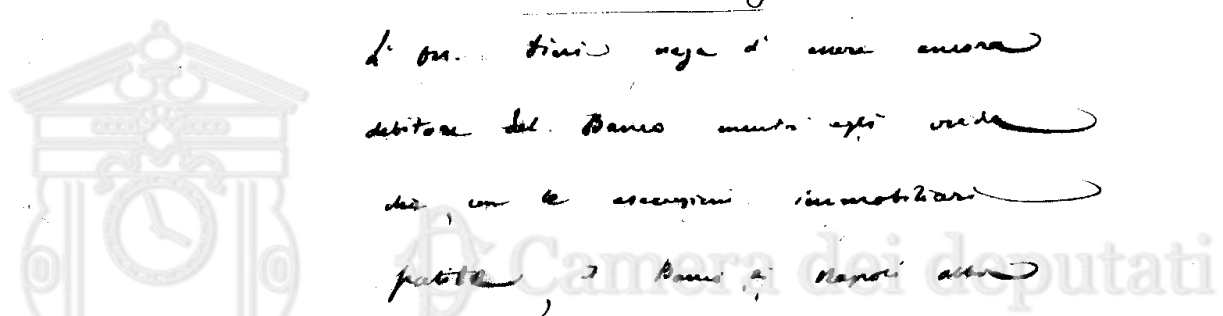 L' on. Tini nega d' essere ancora
debitore del Banco mentre egli crede
che, con le esecuzioni immobiliari
patite, il Banco di Napoli abbia
Camera dei deputati